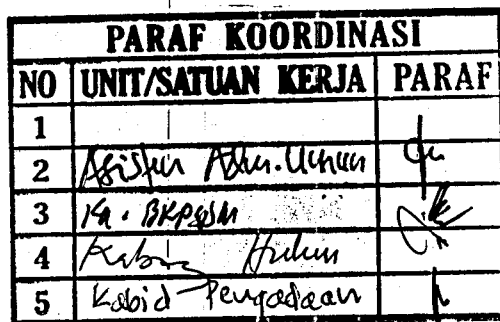 PARAF KOORDINASI
NO UNIT/SATUAN KERJA PARAF
1
2 Asisten Adm. Umum
3 Ka. BKPSDM
4 Kabag Hukum
5 Kabid Pengadaan